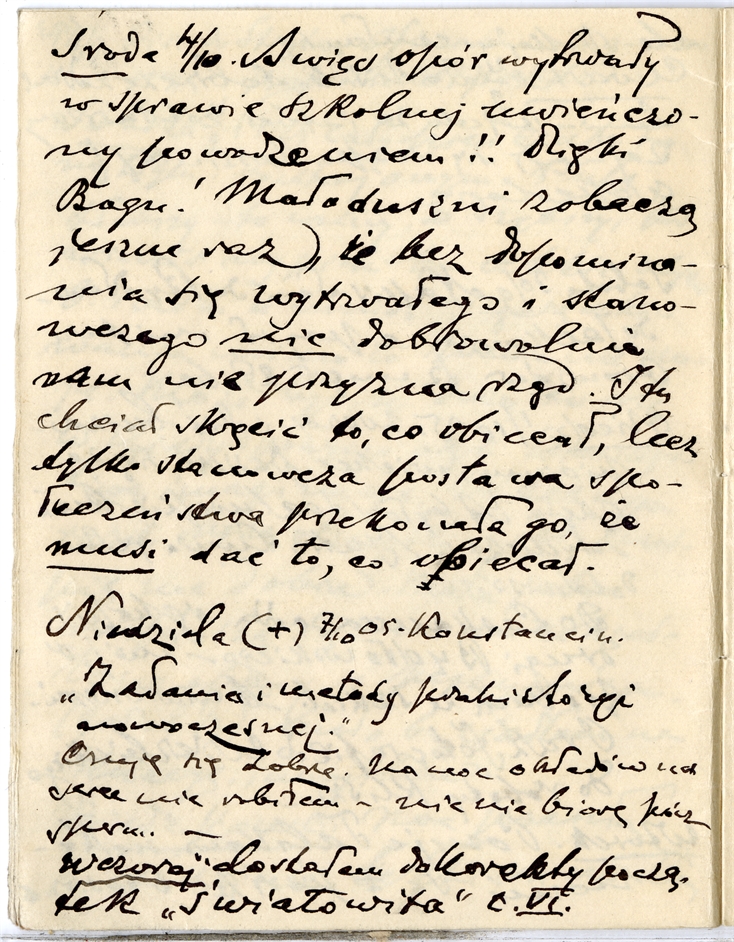 Środa 4/10. A więc opór wytrwały
w sprawie szkolnej uwieńczo-
ny powodzeniem!! Dzięki
Bogu! Małoduszni zobaczą
jeszcze raz), że bez dopomina-
nia się wytrwałego i stano-
wczego nic dobrowolnie
nam nie przyzna rząd. I tu
chciał skręcić to, co obiecał, lecz
tylko stanowcza postawa spo-
łeczeństwa przekonała go, że
musi dać to, co obiecał.
Niedziela (+) 7/10 05. Konstancin.
„Zadania i metody prahistoryi
nowoczesnej."
Czuję się dobrze. Na noc okładów na
serce nie robiłem – nic nie biorę prócz
sperm. —
wczoraj dostałem do korekty począ-
tek „Światowita" t. VI.